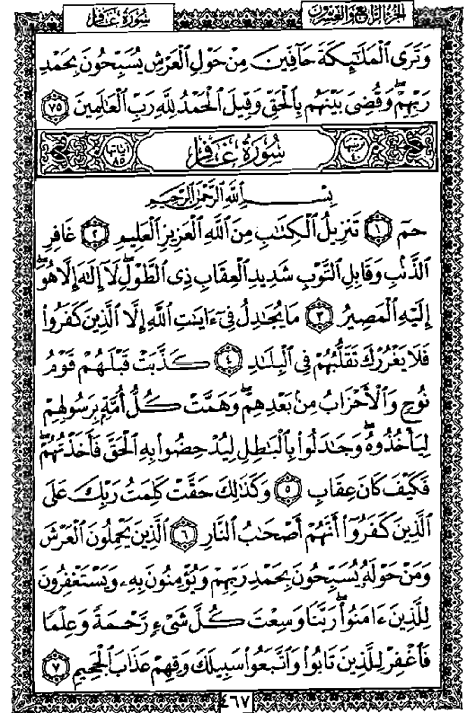 الجزء الرابع والعشرون
سُورَةُ غَافِر
وَتَرَى ٱلْمَلَٰٓئِكَةَ حَآفِّينَ مِنْ حَوْلِ ٱلْعَرْشِ يُسَبِّحُونَ بِحَمْدِ
رَبِّهِمْ ۖ وَقُضِىَ بَيْنَهُم بِٱلْحَقِّ وَقِيلَ ٱلْحَمْدُ لِلَّهِ رَبِّ ٱلْعَٰلَمِينَ ٧٥
ترتيبها ٤٠ سُورَةُ غَافِر آياتها ٨٥
بِسْمِ ٱللَّهِ ٱلرَّحْمَٰنِ ٱلرَّحِيمِ
حمٓ ١ تَنزِيلُ ٱلْكِتَٰبِ مِنَ ٱللَّهِ ٱلْعَزِيزِ ٱلْعَلِيمِ ٢ غَافِرِ
ٱلذَّنۢبِ وَقَابِلِ ٱلتَّوْبِ شَدِيدِ ٱلْعِقَابِ ذِى ٱلطَّوْلِ ۖ لَآ إِلَٰهَ إِلَّا هُوَ ۖ
إِلَيْهِ ٱلْمَصِيرُ ٣ مَا يُجَٰدِلُ فِىٓ ءَايَٰتِ ٱللَّهِ إِلَّا ٱلَّذِينَ كَفَرُوا۟
فَلَا يَغْرُرْكَ تَقَلُّبُهُمْ فِى ٱلْبِلَٰدِ ٤ كَذَّبَتْ قَبْلَهُمْ قَوْمُ
نُوحٍ وَٱلْأَحْزَابُ مِنۢ بَعْدِهِمْ ۖ وَهَمَّتْ كُلُّ أُمَّةٍۭ بِرَسُولِهِمْ
لِيَأْخُذُوهُ ۖ وَجَٰدَلُوا۟ بِٱلْبَٰطِلِ لِيُدْحِضُوا۟ بِهِ ٱلْحَقَّ فَأَخَذْتُهُمْ ۖ
فَكَيْفَ كَانَ عِقَابِ ٥ وَكَذَٰلِكَ حَقَّتْ كَلِمَتُ رَبِّكَ عَلَى
ٱلَّذِينَ كَفَرُوٓا۟ أَنَّهُمْ أَصْحَٰبُ ٱلنَّارِ ٦ ٱلَّذِينَ يَحْمِلُونَ ٱلْعَرْشَ
وَمَنْ حَوْلَهُۥ يُسَبِّحُونَ بِحَمْدِ رَبِّهِمْ وَيُؤْمِنُونَ بِهِۦ وَيَسْتَغْفِرُونَ
لِلَّذِينَ ءَامَنُوا۟ رَبَّنَا وَسِعْتَ كُلَّ شَىْءٍ رَّحْمَةً وَعِلْمًا
فَٱغْفِرْ لِلَّذِينَ تَابُوا۟ وَٱتَّبَعُوا۟ سَبِيلَكَ وَقِهِمْ عَذَابَ ٱلْجَحِيمِ ٧
٤٦٧